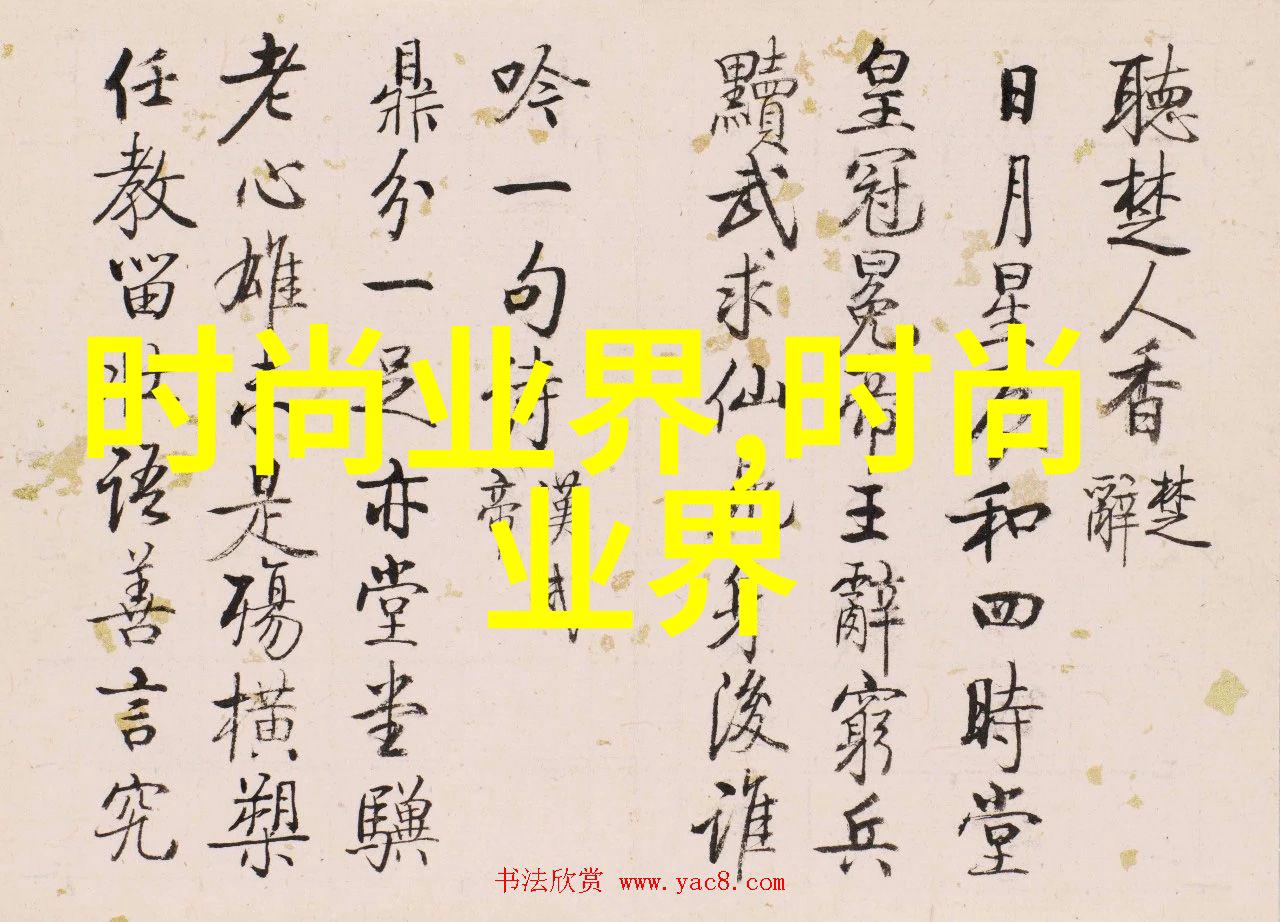 聽楚人香 楚辭
日月星和四時堂
皇冠冕帝王辭窮兵
黷武求仙身後誰
吟一句詩 漢武帝
鼎分一足亦堂堂驥
老心雄未是殤橫槊
任教留壯語善言究
时尚业界,时尚
业界
书法欣赏 www.yac8.com